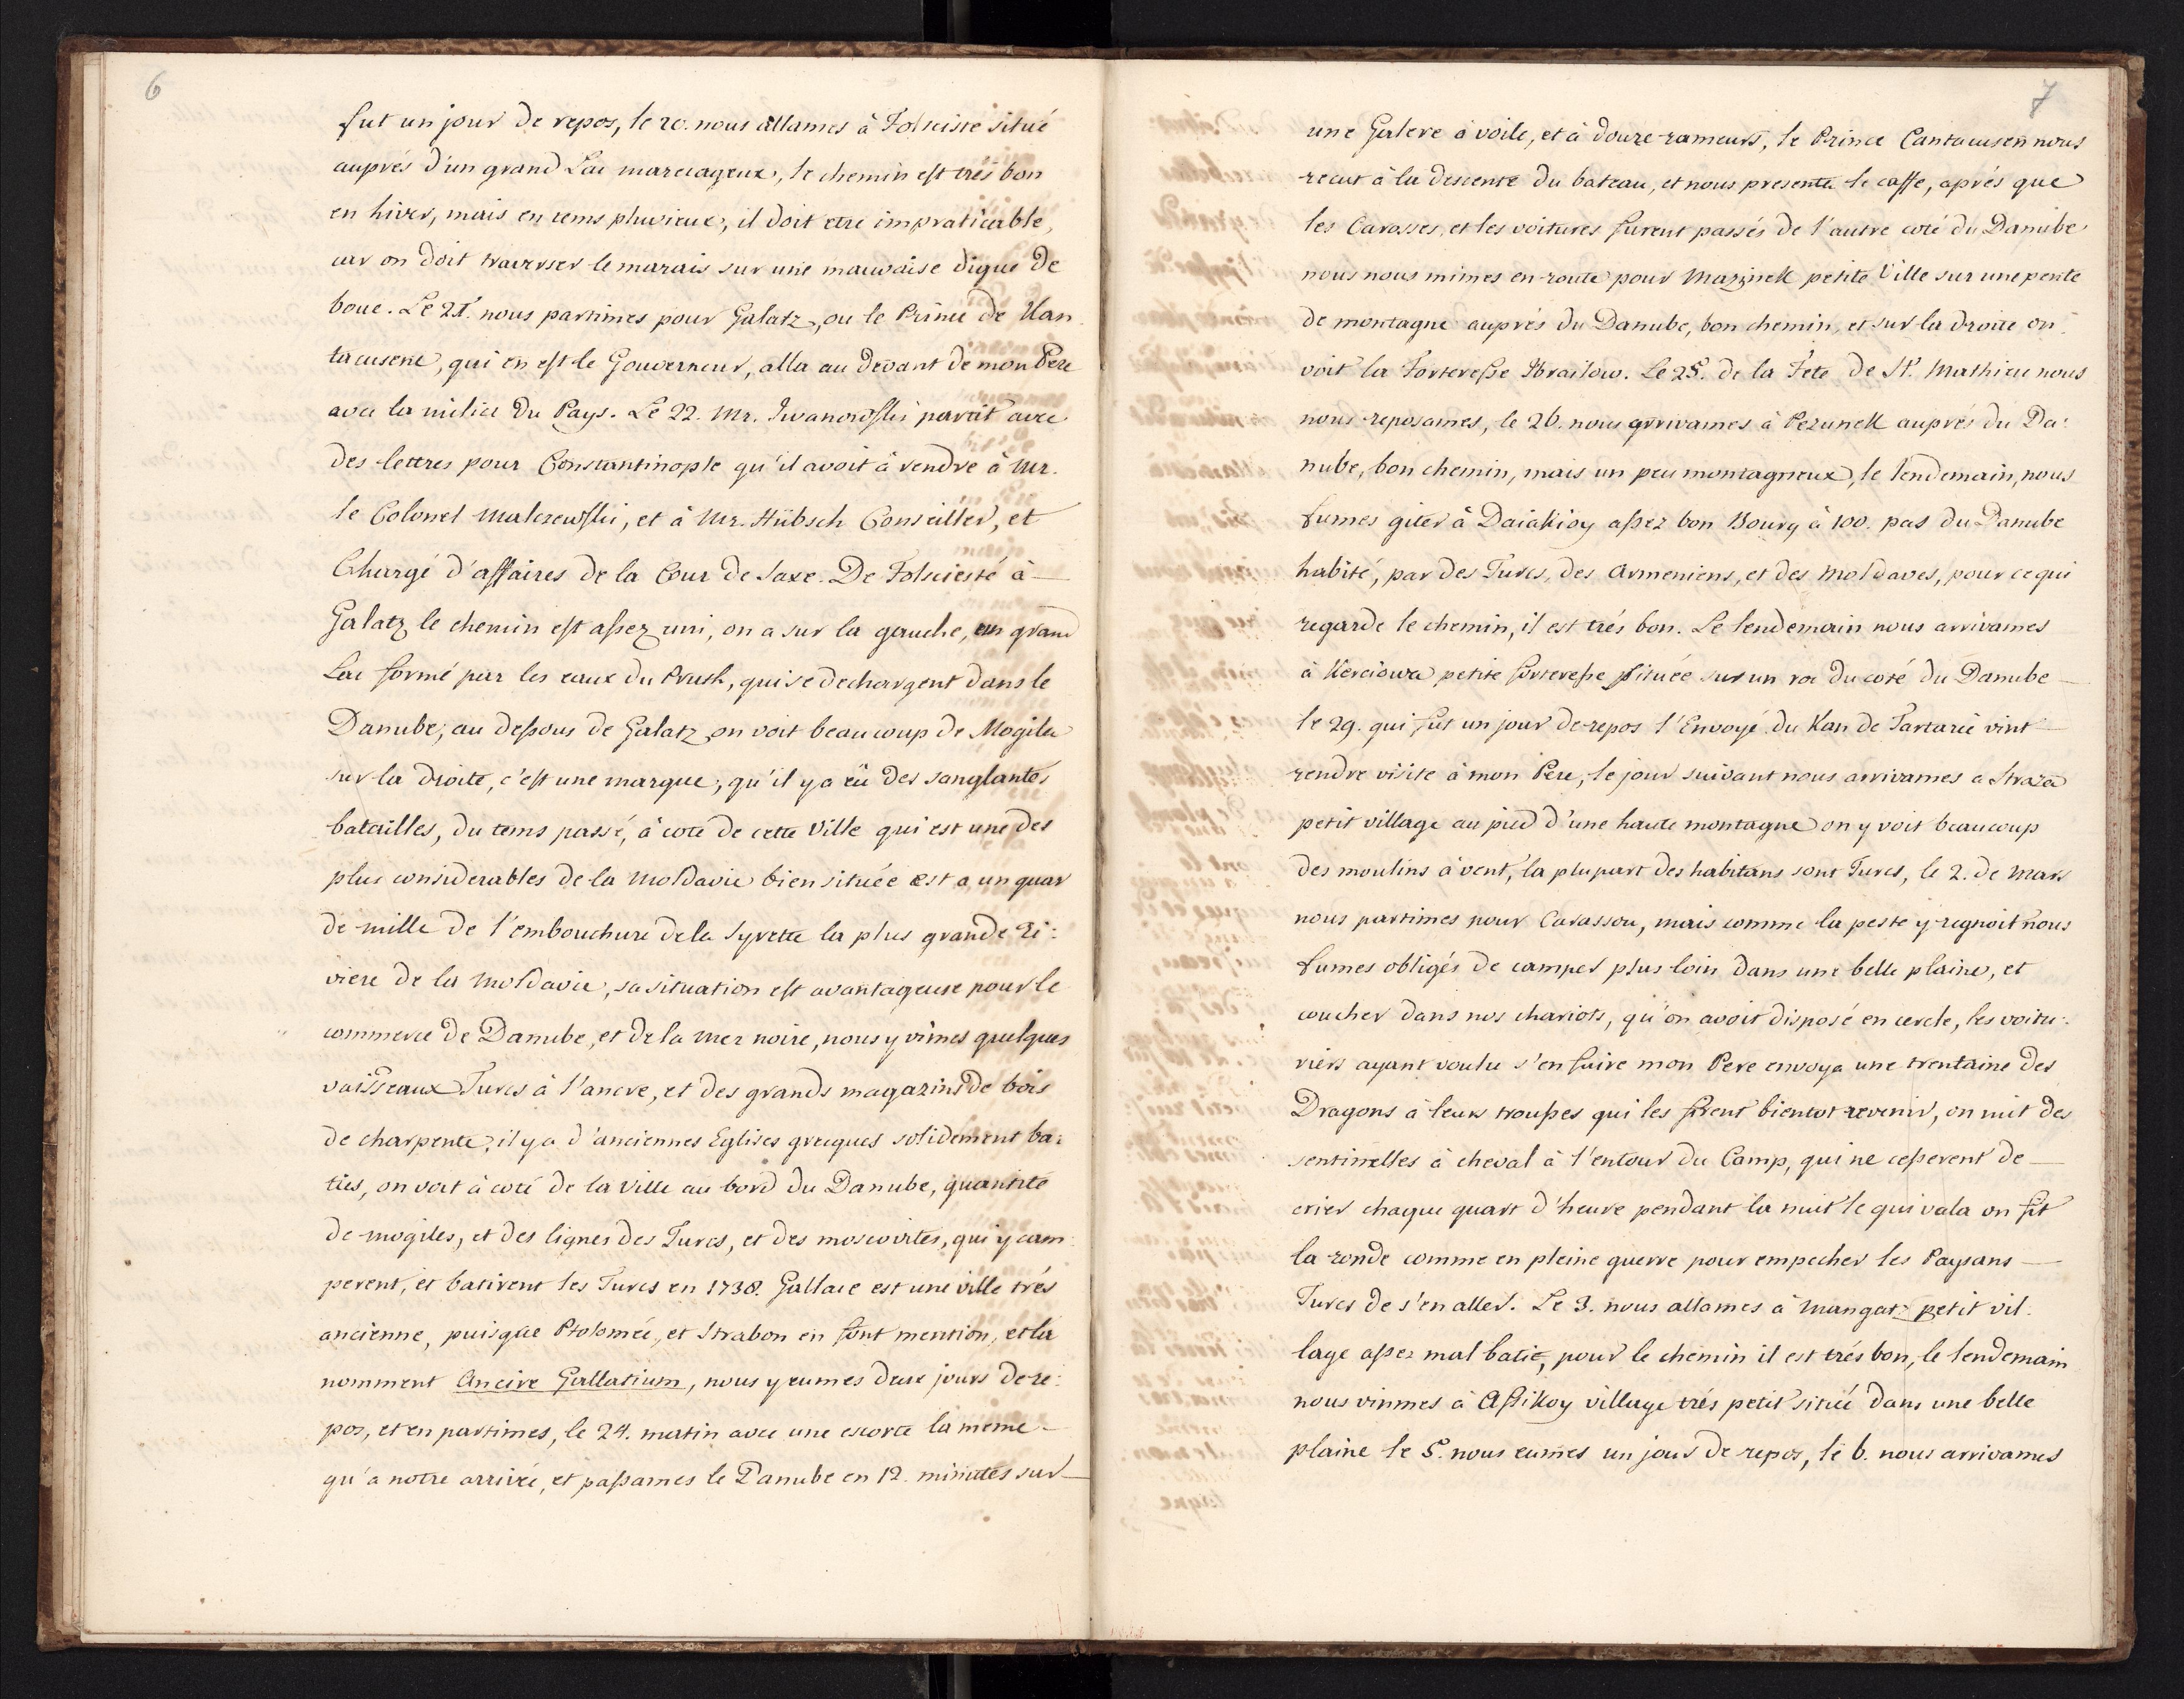 6
fut un jour de repos, le 20. nous allames à Folsciste situé
auprés d'un grand Lac mareiageux, le chemin est trés bon
en hiver, mais en tems pluvieux, il doit etre impraticable,
car on doit traverser le marais sur une mauvaise digue de
boue. Le 21. nous partimes pour Galatz, ou le Prince de Kan
tacusene, qui en est le Gouverneur, alla au devant de mon Pere
avec la milice du Pays. Le 22. Mr. Iwanowski partit avec
des lettres pour Constantinople qu'il avoit à rendre à Mr.
le Colonel Malczewski, et à Mr. Hübsch Conseiller, et
Chargé d'affaires de la Cour de Saxe. De Folsciesté à
Galatz le chemin est assez uni, on a sur la gauche, un grand
Lac formé par les eaux du Pruth, qui se dechargent dans le
Danube; au dessous de Galatz on voit beaucoup de Mogila
sur la droite, c'est une marque, qu'il y a eü des sanglantes
batailles, du tems passé, à coté de cette Ville qui est une des
plus considerables de la Moldavie bien située est a un quar
de mille de l'embouchure de la Syrette la plus grande Ri:
viere de la Moldavie, sa situation est avantageuse pour le
commerce de Danube, et de la Mer noire, nous y vimes quelques
vaisseaux Turcs à l'ancre, et des grands magazins de bois
de charpente, il y a d'anciennes Eglises grecques solidement ba:
ties, on voit à coté de la Ville au bord du Danube, quantité
de mogiles, et des lignes des Turcs, et des moscovites, qui y cam
perent, et batirent les Turcs en 1738. Gallace est une ville trés
ancienne, puisque Ptolomée, et Strabon en font mention, et la
nomment Ancire Gallatium, nous y eumes deux jours de re:
pos, et en partimes, le 24. matin avec une escorte la meme
qu'a notre arrivée, et passames le Danube en 12. minutes sur
7
une Galere à voile, et à douze rameurs, le Prince Cantacusen nous
recut à la descente du bateau, et nous presenta le caffe, aprés que
les Carosses, et les voitures furent passés de l'autre coté du Danube
nous nous mimes en route pour Mazinek petite Ville sur une pente
de montagne auprés du Danube, bon chemin, et sur la droite on
voit la Forteresse Ibrailow. Le 25. de la Fete de St. Mathieu nous
nous reposames, le 26. nous arrivames à Pezunek auprés du Da:
nube, bon chemin, mais un peu montagneux, le lendemain, nous
fumes giter à Daiakioy assez bon Bourg à 100. pas du Danube
habité, par des Turcs, des Armeniens, et des Moldaves, pour ce qui
regarde le chemin, il est trés bon. Le lendemain nous arrivames
à Kerciowa petite forteresse située sur un roc du coté du Danube
le 29. qui fut un jour de repos l'Envoyé du Kan de Tartarie vint
rendre visite à mon Pere, le jour suivant nous arrivames a Straza
petit village au pied d'une haute montagne on y voit beaucoup
des moulins à vent, la plupart des habitans sont Turcs, le 2. de Mars
nous partimes pour Carassou, mais comme la peste y regnoit nous
fumes obligés de camper plus loin dans une belle plaine, et
coucher dans nos chariots, qu'on avoit disposé en cercle, les voitu:
riers ayant voulu s'enfuire mon Pere envoya une trentaine des
Dragons à leurs trousses qui les firent bientot revenir, on mit des
sentinelles à cheval à l'entour du Camp, qui ne cesserent de
crier chaque quart d'heure pendant la nuit le qui vala on fit
la ronde comme en pleine guerre pour empecher les Paysans
Turcs de s'en aller. Le 3. nous allames à Mangat petit vil
lage assez mal batie, pour le chemin il est trés bon, le lendemain
nous vinmes à Assikoy village trés petit situé dans une belle
plaine le 5. nous eumes un jour de repos, le 6. nous arrivames